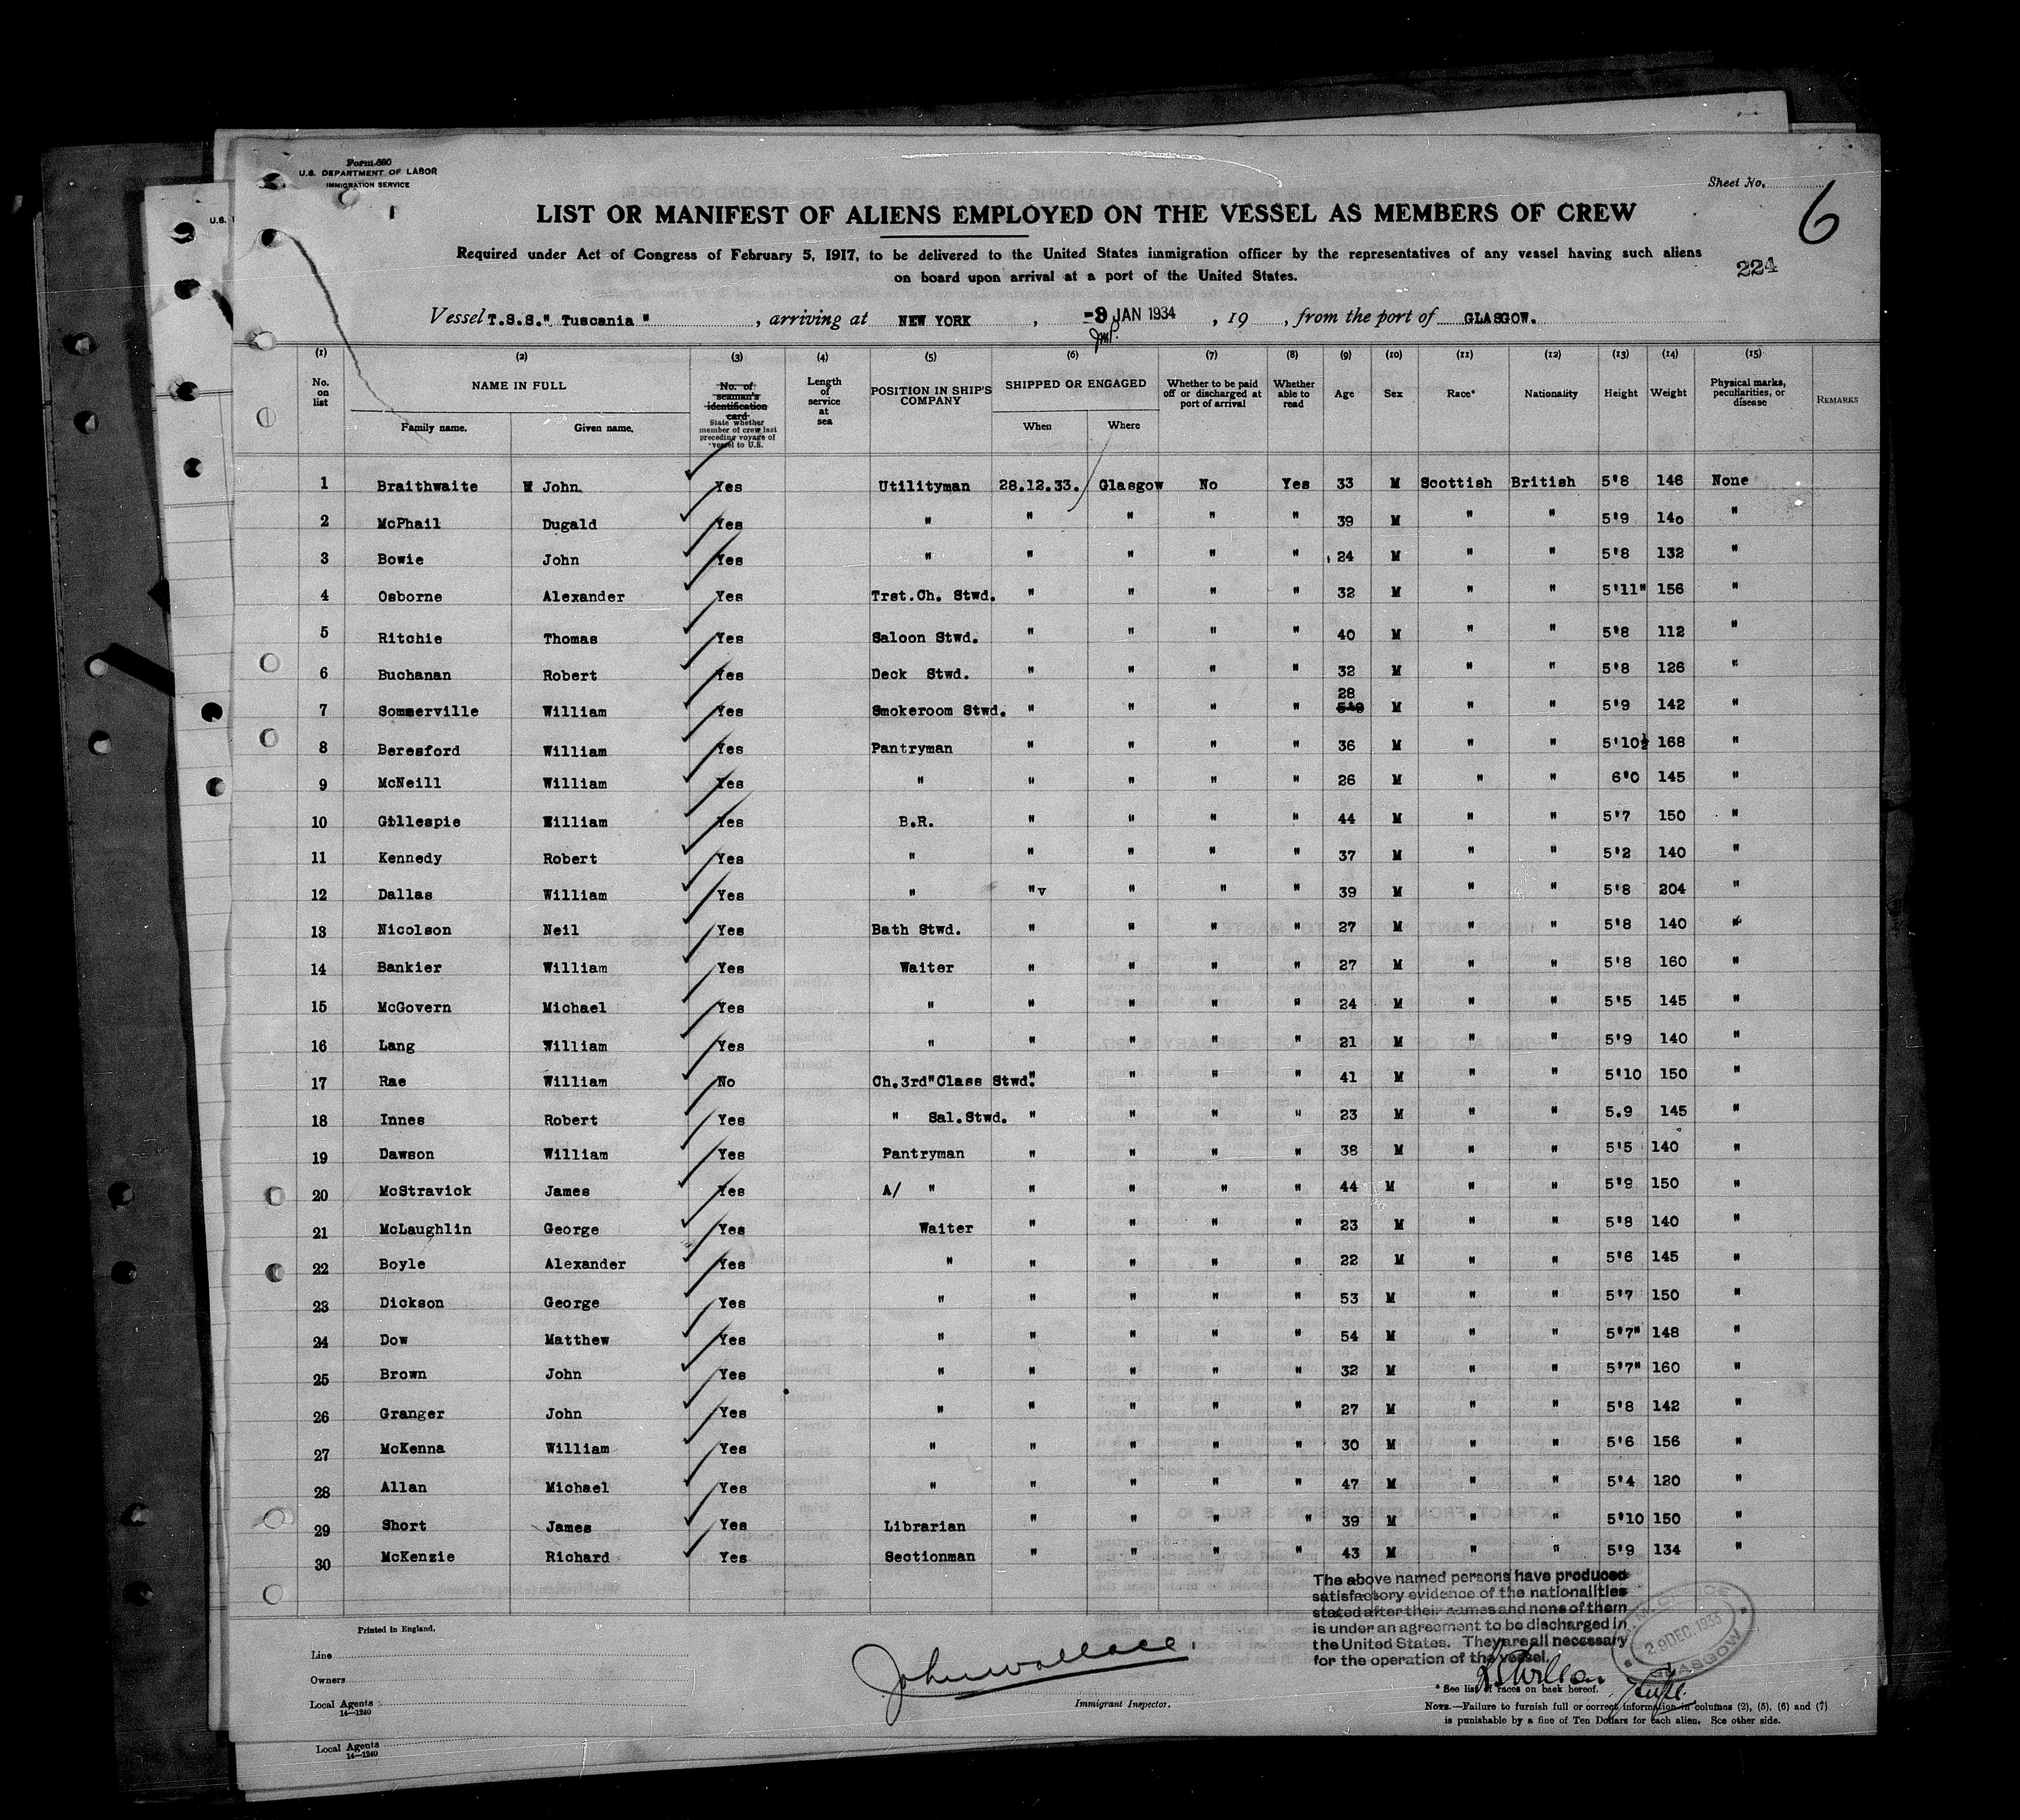 Form 680
U.S. DEPARTMENT OF LABOR
IMMIGRATION SERVICE
Sheet No.
6
LIST OR MANIFEST OF ALIENS EMPLOYED ON THE VESSEL AS MEMBERS OF CREW
Required under Act of Congress of February 5, 1917, to be delivered to the United States immigration officer by the representatives of any vessel having such aliens
on board upon arrival at a port of the United States.
224
Vessel T.S.S." Tuscania ", arriving at NEW YORK, -9 JAN 1934, 19 , from the port of GLASGOW.
(1) (2) (3) (4) (5) (6) (7) (8) (9) (10) (11) (12) (13) (14) (15)
No. on list NAME IN FULL Family name. Given name. No. of seaman's identification card State whether member of crew last preceding voyage of vessel to U.S. Length of service at sea POSITION IN SHIP'S COMPANY SHIPPED OR ENGAGED When Where Whether to be paid off or discharged at port of arrival Whether able to read Age Sex Race* Nationality Height Weight Physical marks, peculiarities, or disease REMARKS
1 Braithwaite John Yes Utilityman 28.12.33. Glasgow No Yes 33 M Scottish British 5'8 146 None
2 McPhail Dugald Yes " " " " " 39 M " " 5'9 140 "
3 Bowie John Yes " " " " " 24 M " " 5'8 132 "
4 Osborne Alexander Yes Trst.Ch. Stwd. " " " " 32 M " " 5'11" 156 "
5 Ritchie Thomas Yes Saloon Stwd. " " " " 40 M " " 5'8 112 "
6 Buchanan Robert Yes Deck Stwd. " " " " 32 M " " 5'8 126 "
7 Sommerville William Yes Smokeroom Stwd. " " " " 28 5'9 M " " 5'9 142 "
8 Beresford William Yes Pantryman " " " " 36 M " " 5'10½ 168 "
9 McNeill William Yes " " " " " 26 M " " 6'0 145 "
10 Gillespie William Yes B.R. " " " " 44 M " " 5'7 150 "
11 Kennedy Robert Yes " " " " " 37 M " " 5'2 140 "
12 Dallas William Yes " "v " " " 39 M " " 5'8 204 "
13 Nicolson Neil Yes Bath Stwd. " " " " 27 M " " 5'8 140 "
14 Bankier William Yes Waiter " " " " 27 M " " 5'8 160 "
15 McGovern Michael Yes " " " " " 24 M " " 5'5 145 "
16 Lang William Yes " " " " " 21 M " " 5'9 140 "
17 Rae William No Ch.3rd"Class Stwd. " " " " 41 M " " 5'10 150 "
18 Innes Robert Yes " Sal.Stwd. " " " " 23 M " " 5.9 145 "
19 Dawson William Yes Pantryman " " " " 38 M " " 5'5 140 "
20 McStravick James Yes A/ " " " " " 44 M " " 5'9 150 "
21 McLaughlin George Yes Waiter " " " " 23 M " " 5'8 140 "
22 Boyle Alexander Yes " " " " " 22 M " " 5'6 145 "
23 Dickson George Yes " " " " " 53 M " " 5'7 150 "
24 Dow Matthew Yes " " " " " 54 M " " 5'7" 148 "
25 Brown John Yes " " " " " 32 M " " 5'7" 160 "
26 Granger John Yes " " " " " 27 M " " 5'8 142 "
27 McKenna William Yes " " " " " 30 M " " 5'6 156 "
28 Allan Michael Yes " " " " " 47 M " " 5'4 120 "
29 Short James Yes Librarian " " " " 39 M " " 5'10 150 "
30 McKenzie Richard Yes Sectionman " " " " 43 M " " 5'9 134 "
The above named persons have produced
satisfactory evidence of the nationalities
stated after their names and none of them
is under an agreement to be discharged in
the United States. They are all necessary
for the operation of the vessel.
29 DEC. 1933
GLASGOW
Printed in England.
Line
Owners
Local Agents
14—1240
John Wallace.
Immigrant Inspector.
* See list of races on back hereof.
NOTE.—Failure to furnish full or correct information in columns (2), (5), (6) and (7)
is punishable by a fine of Ten Dollars for each alien. See other side.
Local Agents
14—1240